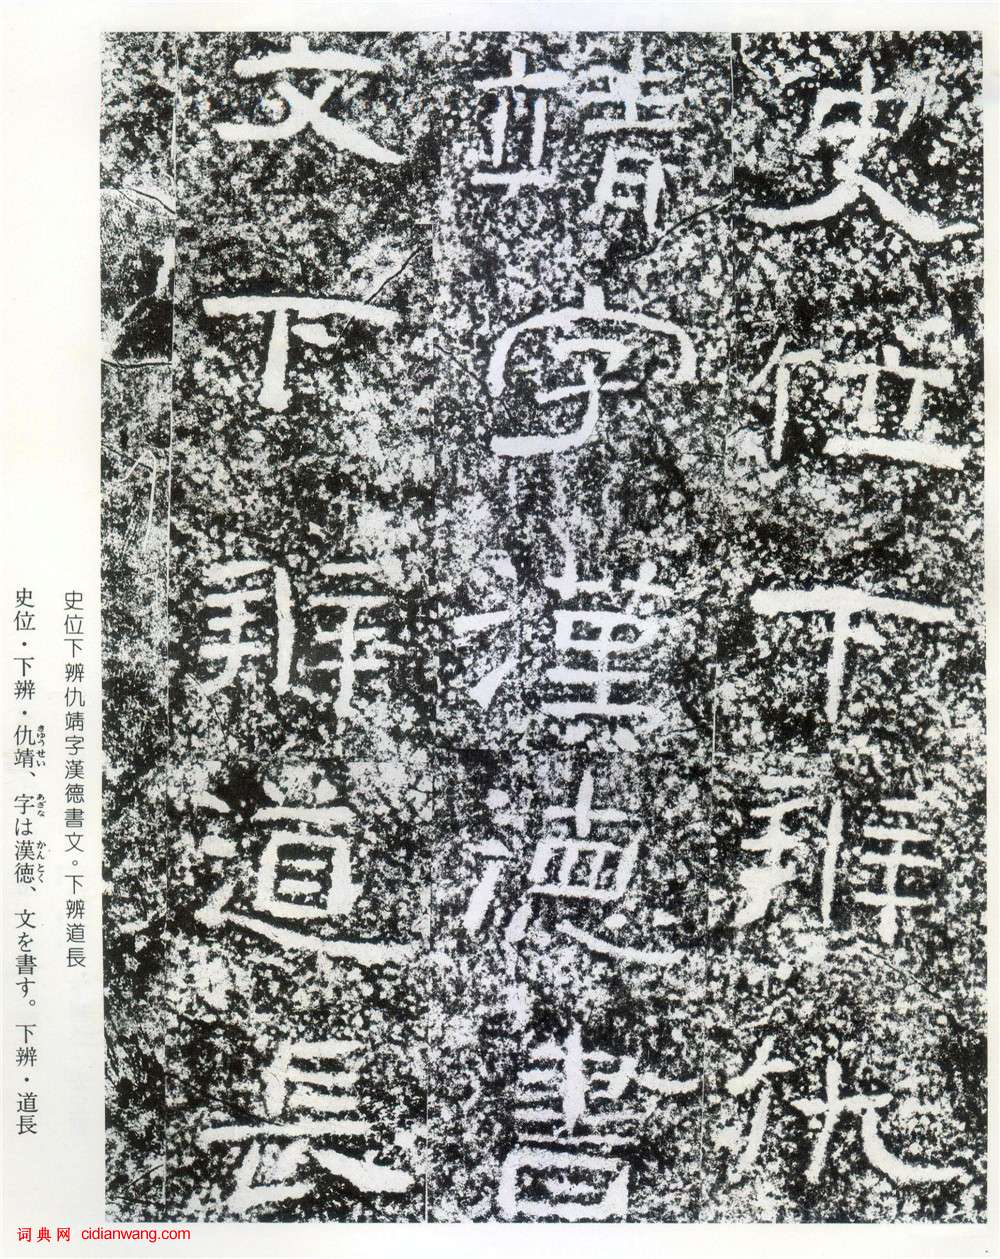 史位下辨仇
靖字漢德書
文下辨道長
史位下辨仇靖字漢德書文。下辨道長
史位・下辨・仇靖、字は漢徳、文を書す。下辨・道長
きゅうせい
あざな
かんとく
词典网 cidianwang.com